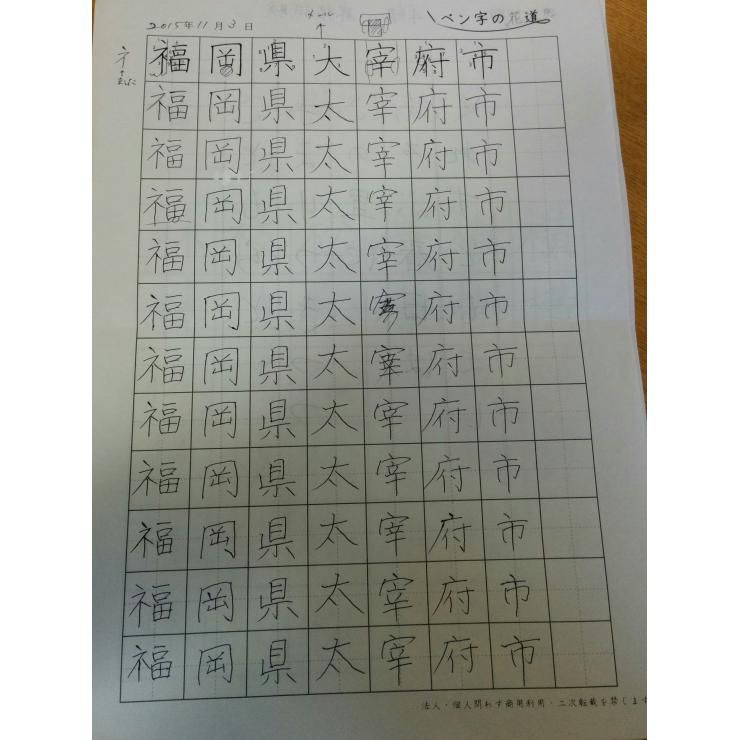 2015年11月3日
ペン字の花道
福岡県太宰府市
福岡県太宰府市
福岡県太宰府市
福岡県太宰府市
福岡県太宰府市
福岡県太宰府市
福岡県太宰府市
福岡県太宰府市
福岡県太宰府市
福岡県太宰府市
福岡県太宰府市
福岡県太宰府市
法人・個人問わず商用利用・二次転載を禁じます